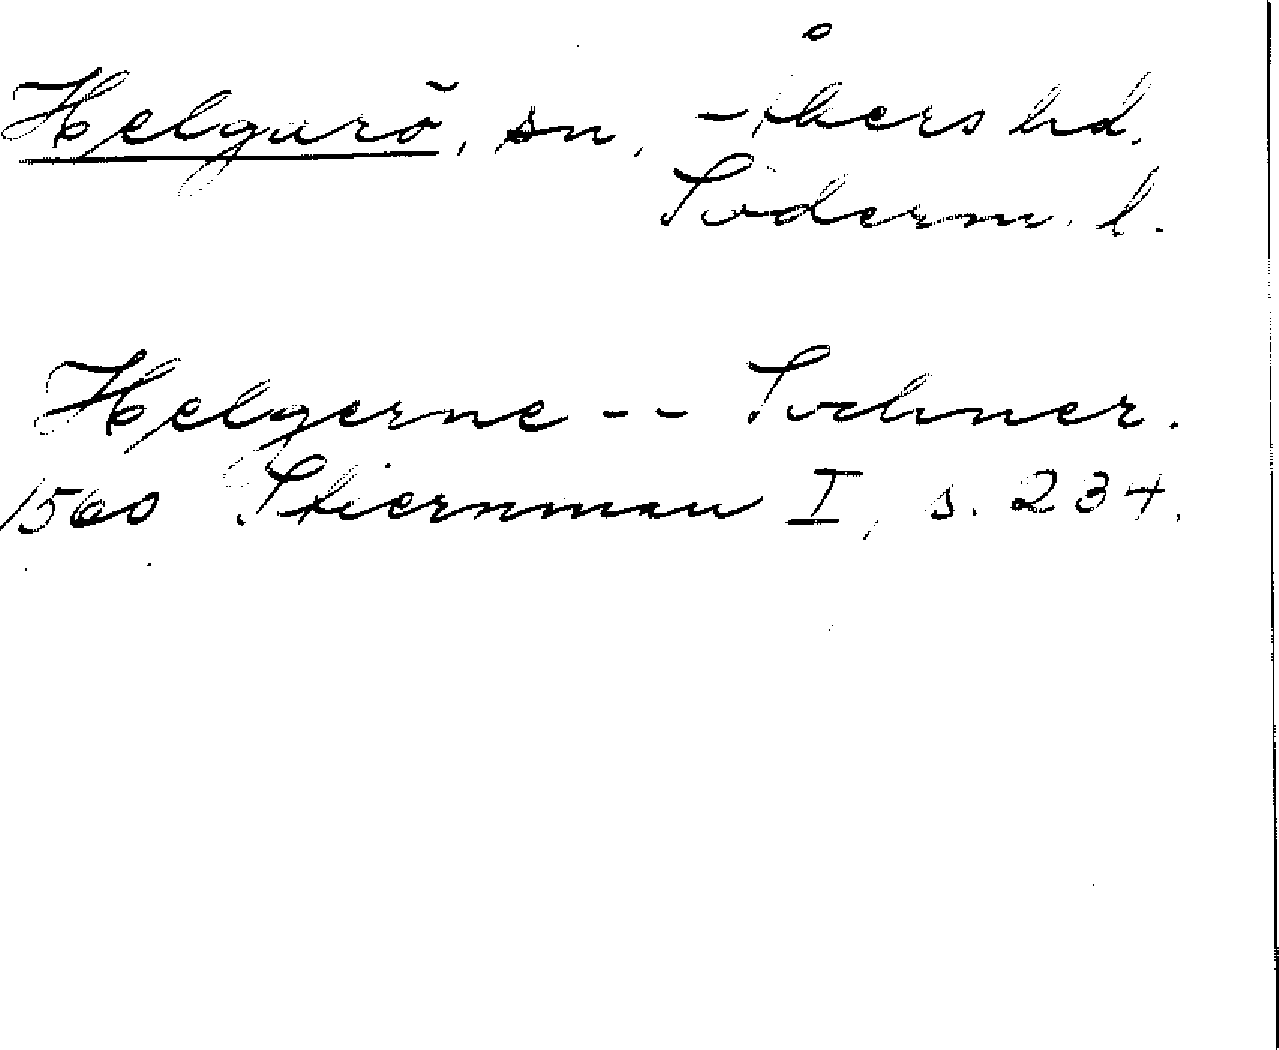 Helgarö, sn, Åkers hd.
Söderm. l.
Helgerne -- Sochner.
1560 Stiernman I, s. 234.